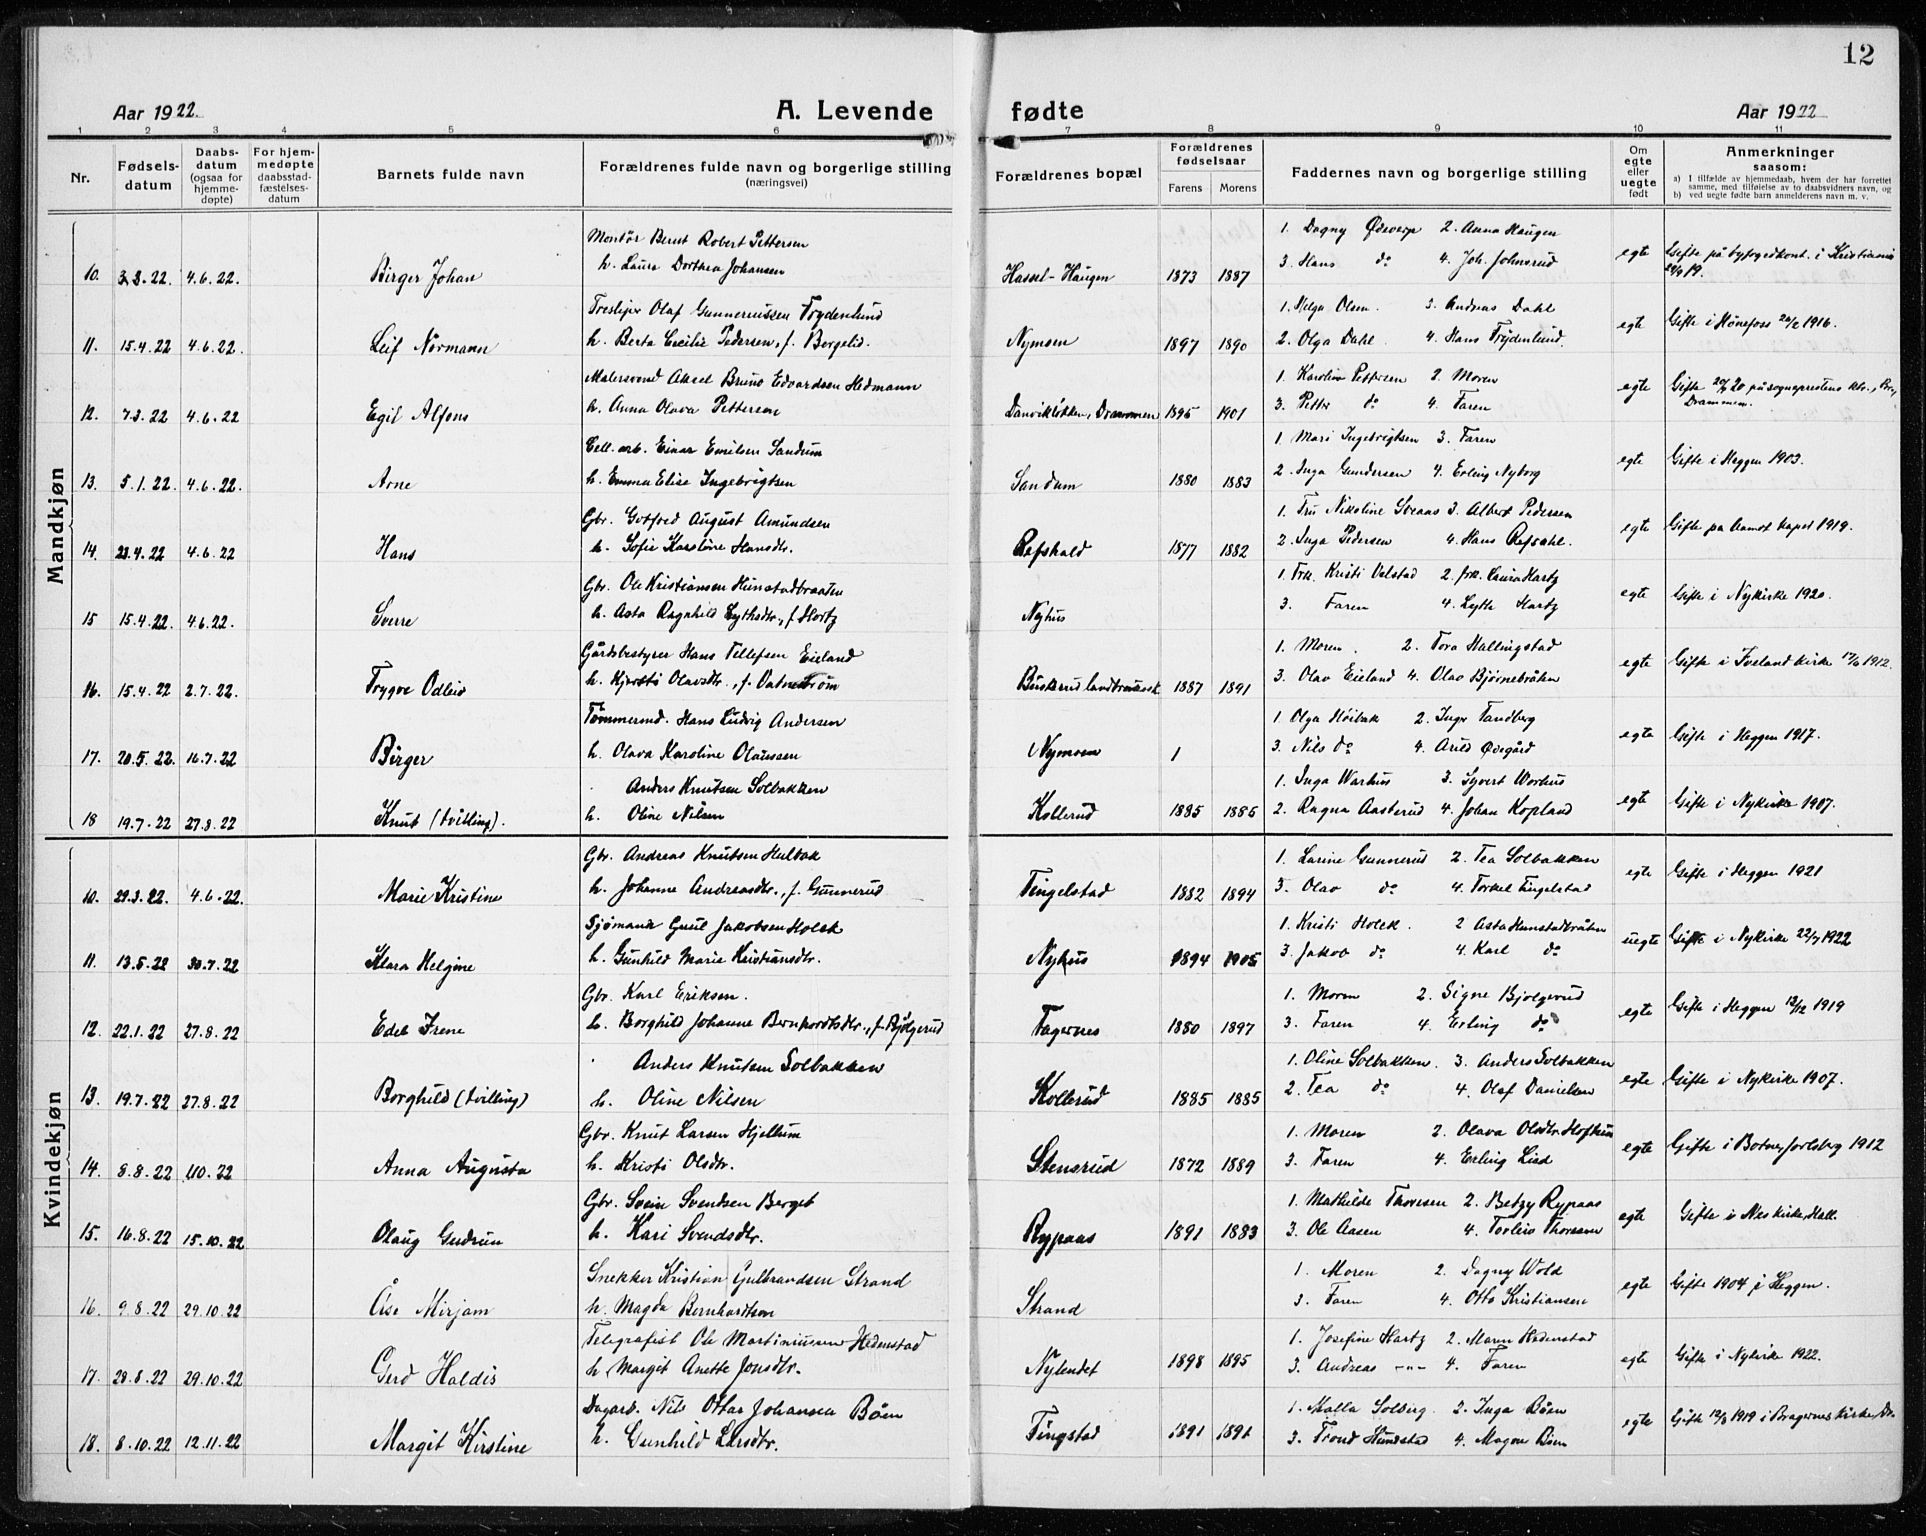 12
Aar 1922. A. Levende fødte Aar 1922
1 2 3 4 5 6 7 8 9 10 11
Nr. Fødsels-datum Daabs-datum (ogsaa for hjemme-døpte) For hjem-medøpte daabsstad-fæstelses-datum Barnets fulde navn Forældrenes fulde navn og borgerlige stilling (næringsvei) Forældrenes bopæl Forældrenes fødselsaar Farens Morens Faddernes navn og borgerlige stilling Om egte eller uegte født Anmerkninger saasom:
a) I tilfælde av hjemmedaab, hvem der har forrettet samme, med tilføielse av to daabsvidners navn, og
b) ved uegte fødte barn anmelderens navn m. v.
Mandkjøn
Montør Bernt Robert Pettersen 1. Dagny Ødeverp 2. Anna Haugen
10. 3.3.22 4.6.22. Birger Johan h. Laura Dorthea Johansen Hassel-Haugen 1873 1887 3. Hans do 4. Joh. Johnsrud egte Gifte på byfogedkont. i Kristiania 19.
Tresliper Olaf Gunneriussen Frydenlund 1. Helga Olsen. 3. Andreas Dahl
11. 15.4.22 4.6.22. Leif Normann h. Berta Cecilie Pedersen, f. Borgelid. Nymoen 1897 1890 2. Olga Dahl 4. Hans Frydenlund. egte Gifte i Hønefoss 1916.
Malersvend Aksel Bruno Edvardsen Hedmann 1. Karoline Pettersen 2. Moren
12. 7.3.22 4.6.22 Egil Alfons h. Anna Olava Pettersen Danvikløkken, Drammen 1895 1901 3. Petter do 4. Faren egte Gifte 20 på sogneprestens ktr., Drammen.
Cell. arb. Einar Emilsen Sandum 1. Mari Ingebrigtsen 3. Faren
13. 5.1.22. 4.6.22. Arne h. Emma Elise Ingebrigtsen Sandum 1880 1883 2. Inga Gundersen 4. Erling Nyborg egte Gifte i Heggen 1903.
Gbr. Gotfred August Amundsen 1. Fru Nikoline Sveaas 3. Albert Pedersen
14. 23.4.22 4.6.22 Hans h. Sofie Karoline Hansdtr. Refshald 1877 1882 2. Inga Pedersen 4. Hans Refsahl. egte Gifte pa Aamot kapel 1919.
Gbr. Ole Kristiansen Hunstadbraaten 1. Frk. Kristi Velstad 2. Frk. Laura Hartz
15 15.4.22. 4.6.22. Sverre h. Asta Ragnhild Lythsdtr., f. Hartz Nyhus 3. Faren 4. Lyth Hartz egte Gifte i Nykirke 1920.
Gårdsbestyrer Hans Tellefsen Eieland 1. Moren. 2. Tora Hallingstad
16. 15.4.22 2.7.22 Trygve Odleid h. Kjersti Olavsdtr., f. Vatnestrøm Buskerud landbrukssk. 1887 1891 3. Olav Eieland 4. Olav Bjørnebråten egte Gifte i Iveland kirke 1912.
Tømmermd. Hans Ludvig Andersen 1. Olga Høibak 2. Inger Tandberg
17. 20.5.22. 16.7.22 Birger h. Olava Karoline Olaussen Nymoen 1 3. Nils do 4. Arild Ødegård egte Gifte i Heggen 1917.
Anders Knutsen Solbakken 1. Inga Warhus 3. Syvert Worhus
18 19.7.22 27.8.22 Knut (tvilling). h. Oline Nilsen Kollerud 1885 1885 2. Ragna Aasterud 4. Johan Kopland egte Gifte i Nykirke 1907.
Kvindekjøn
Gbr. Andreas Knutsen Hulbak 1. Larine Gunnerud 2. Tea Solbakken
10. 29.3.22. 4.6.22. Marie Kristine h. Johanne Andreasdtr., f. Gunnerud Tingelstad 1882 1894 3. Olav do 4. Torkel Tingelstad egte Gifte i Heggen 1921
Sjømand Guul Jakobsen Holek 1. Kristi Holek. 2 Asta Hunstadbråten
11. 13.5.22 30.7.22 Klara Helgine h. Gunhild Marie Kristiansdtr. Nyhus 1894 1905 3. Jakob do 4. Karl do uegte Gifte i Nykirke 22/7 1922
Gbr. Karl Eriksen. 1. Moren 2. Signe Bjølgerud
12. 22.1.22 27.8.22 Edel Irene h. Borghild Johanne Bernhardtsdtr., f. Bjølgerud Fagernes 1880 1897 3. Faren 4. Erling do egte Gifte i Heggen 13/12 1919
Anders Knutsen Solbakken 1. Oline Solbakken. 3. Anders Solbakken
13. 19.7.22 27.8.22 Borghild (tvilling) h. Oline Nilsen Kollerud 1885 1885 2. Tea do 4. Olaf Danielsen egte Gifte i Nykirke 1907.
Gbr. Knut Larsen Hjellum 1. Moren 2. Olava Olsdtr. Hoftun
14. 8.8.22 1.10.22 Anna Augusta h. Kristi Olsdtr. Stensrud 1872 1889 3. Faren 4. Erling Lied egte Gifte i Botne, Jarlsberg 1912
Gbr. Svein Svendsen Berget 1. Mathilde Thoresen 2. Betzy Rypaas
15. 16.8.22 15.10.22 Olaug Gudrun h. Kari Svendsdtr. Rypaas 1891 1883 3. Ole Aasen 4. Torleiv Thoresen egte Gifte i Nes kirke, Hall.
Snekker Kristian Gulbrandsen Strand 1. Moren 2. Dagny Wold
16. 9.8.22 29.10.22 Åse Mirjam h. Magda Bernhardtsen Strand 3. Faren 4. Otto Kristiansen egte Gifte 1904 i Heggen.
Telegrafist Ole Martiniussen Hedenstad 1. Josefine Hartz 2. Maren Hedenstad
17. 28.8.22 29.10.22 Gerd Haldis h. Margit Anette Jonsdtr. Nylendet 1898 1895 3. Andreas -"- 4. Faren egte Gifte i Nykirke 1922.
Dagarb. Nils Ottar Johansen Bøen 1. Malla Solberg. 2. Inga Bøen
18. 8.10.22 12.11.22 Margit Kirstine h. Gunhild Larsdtr. Tingstad 1891 1891 3. Trond Hunstad 4. Magne Bøen egte Gifte 1919 i Bragernes kirke, Dr.